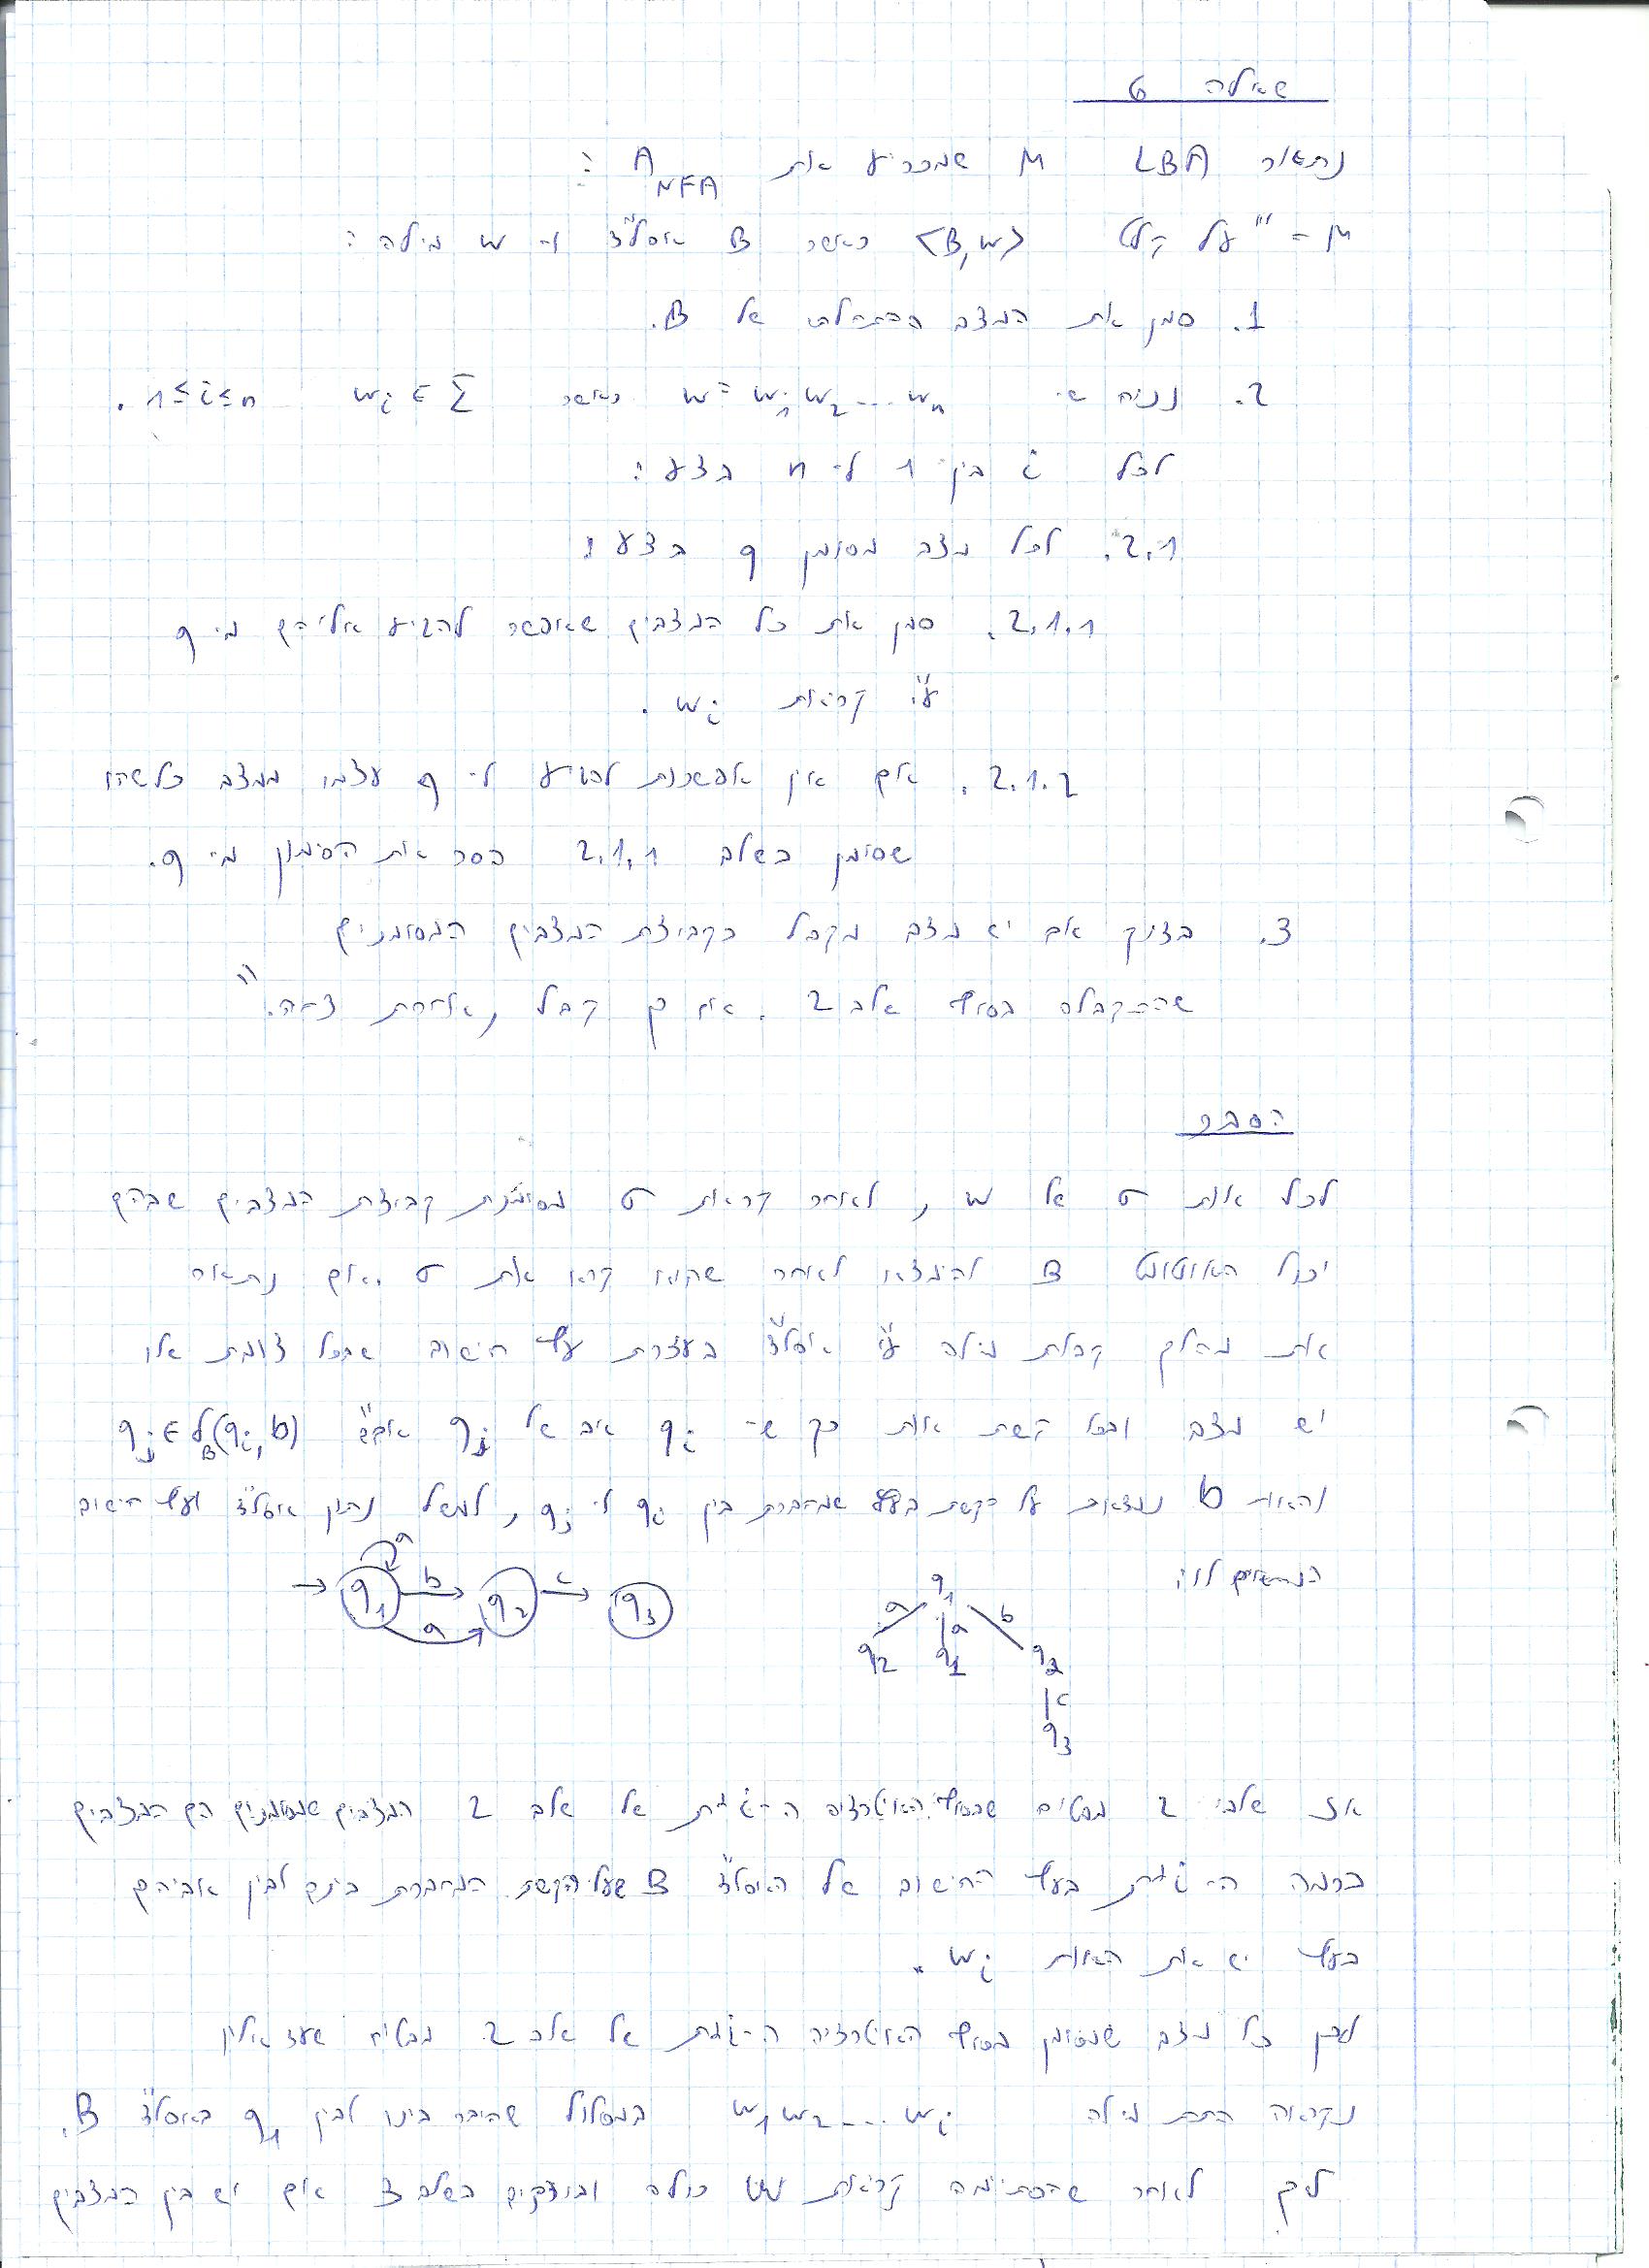 שאלה 6
נתאר LBA M שמכריע את A_NFA :
M = "על קלט <B,w> כאשר B אסל"ד ו- w מילה :
1. סמן את המצב ההתחלתי של B.
2. נניח ש- w = w₁w₂...wₙ כאשר wᵢ ∈ Σ 1≤i≤n .
לכל i בין 1 ל- n בצע :
2.1. לכל מצב מסומן q בצע :
2.1.1. סמן את כל המצבים שאפשר להגיע אליהם מ- q
ע"י קריאת wᵢ .
2.1.2. אם אין אפשרות להגיע ל- q עצמו ממצב כלשהו
שסומן בשלב 2.1.1 הסר את הסימון מ- q.
3. בדוק אם יש מצב מקבל בקבוצת המצבים המסומנים
שהתקבלה בסוף שלב 2 . אם כן קבל, אחרת דחה."
הסבר
לכל אות σ של w , לאחר קריאת σ מסומנת קבוצת המצבים שבהם
יכול האוטומט B להימצא לאחר שהוא קרא את σ . אם נתאר
את מהלך קבלת מילה ע"י אסל"ד בעזרת עץ חישוב שבכל צומת שלו
יש מצב ובכל קשת אות כך ש- qᵢ אב של qⱼ אם"ם qⱼ ∈ δ_B(qᵢ, b)
והאות b נמצאת על הקשת בעץ שמחברת בין qᵢ ל- qⱼ , למשל נתון אסל"ד ועץ חישוב
המתאים לו:
q₁ a b a q₂ c q₃
q₁ a a b q₂ q₁ q₂ c q₃
אז שלבי 2 מבטיח שבסוף האיטרציה ה- i-ית של שלב 2 המצבים שמסומנים הם המצבים
ברמה ה- i-ית בעץ החישוב של האסל"ד B שעל הקשת המחברת בינם לבין אביהם
בעץ יש את האות wᵢ .
לכן כל מצב שמסומן בסוף האיטרציה ה- i-ית של שלב 2 מבטיח שעד אליו
נקראה תת מילה w₁w₂...wᵢ במסלול שחיבר בינו לבין q₁ באסל"ד B.
לכן לאחר שהסתיימה קריאת w כולה ובודקים בשלב 3 אם יש בין המצבים